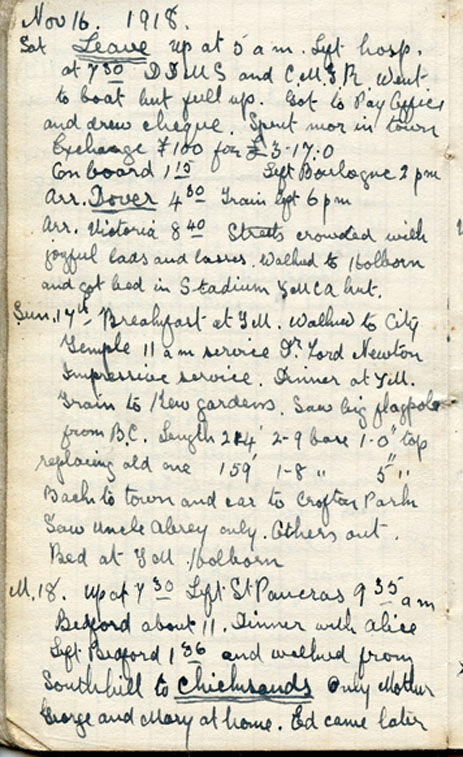 Nov 16. 1918.
Sat Leave up at 5 a m. Left hosp.
at 7 30 D D M S and C. M. S R. Went
to boat but full up. Got to Pay Office
and drew cheque. Spent mor in town
Exchange ₣100 for £3-17:0
On board 1 15 Left Boulogne 2 pm
Arr. Dover 4 30 Train left 6 pm
Arr. Victoria 8 40 Streets crowded with
joyful lads and lasses. Walked to Holborn
and got bed in Stadium YMCA hut.
Sun. 17th- Breakfast at Y M. Walked to City
Temple 11 a m service Dr. Lord Newton
Impressive service. Dinner at Y M.
Train to Kew gardens. Saw big flagpole
from B.C. Length 214' 2-9 base 1-0" top
replacing old one 159' 1-8 " 5" "
Back to town and car to Crofton Park
Saw Uncle only. Others out.
Bed at Y M Holborn
M. 18. Up at 7 30 Left St Pancras 9 35 a m
Bedford about 11. Dinner with Alice
Left Bedford 1 36 and walked from
Southill to Chicksands Only Mother
George and Mary at home. Ed came later